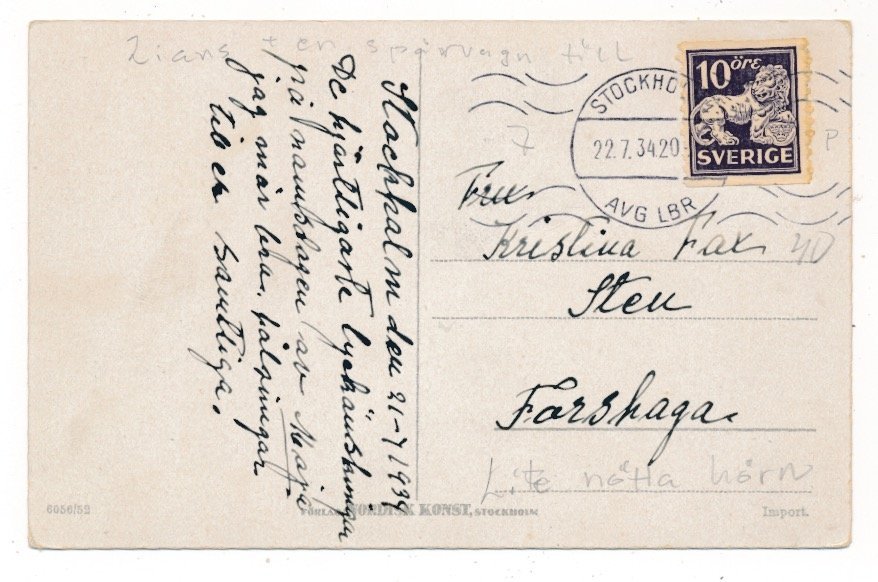 + en spårvagn till
Stockholm den 21-7 1934
De hjärtligaste lyckönskningar
på namnsdagen av Maja.
jag mår bra. hälsningar
till er samtliga.
10 öre
SVERIGE
STOCKHO
22.7.34.20-
AVG LBR
7
P
Fru
Kristina Fax
40
Sten
Forshaga.
Lite nötta hörn
6056/52
FÖRLAG NORDISK KONST, STOCKHOLM
Import.